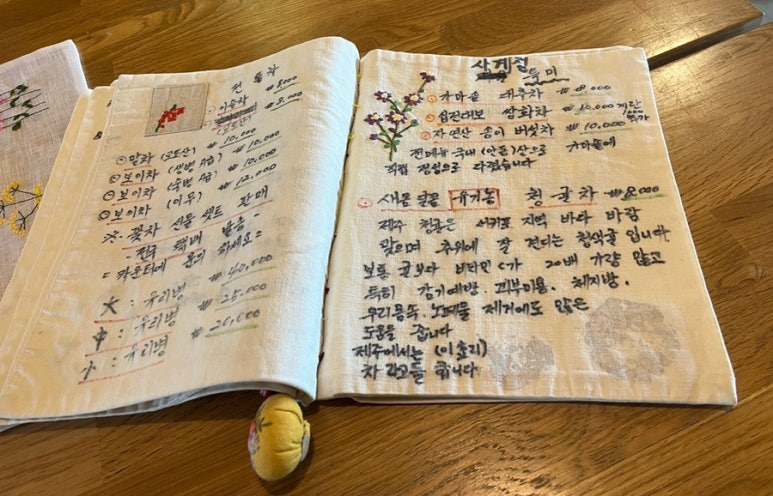 전통차
이슬차 ₩8000
₩8.000
(오도산)
말차 (오도산) ₩10,000
보이차 (생병 7급) ₩10,000
보이차 (숙병 7급) ₩10,000
보이차 (이무) ₩12,000
※ 꽃차 선물 셋트 판매
- 전국 택배 발송 -
= 카운터에 문의 하세요 =
大 : 유리병 ₩40,000
中 : 유리병 ₩25,000
小 : 유리병 ₩20,000
사계절
가마솥 대추차 ₩8.000
십전대보 쌍화차 ₩10,000 계란 추가
자연산 송이 버섯차 ₩10,000
전메뉴 국내(안동)산으로 가마솥에
직접 정성으로 다렸습니다
새콤 달콤 유기농 청귤차 ₩8.000
제주 청귤은 서귀포 지역 바다 바람
맞으며 추위에 잘 견디는 청색귤 입니다
보통 귤보다 비타민C가 20배 가량 많고
특히 감기예방. 피부미용. 체지방.
우리몸속. 노폐물 제거에도 많은
도움을 줍니다
제주에서는 (이효리)
차 라고들 합니다